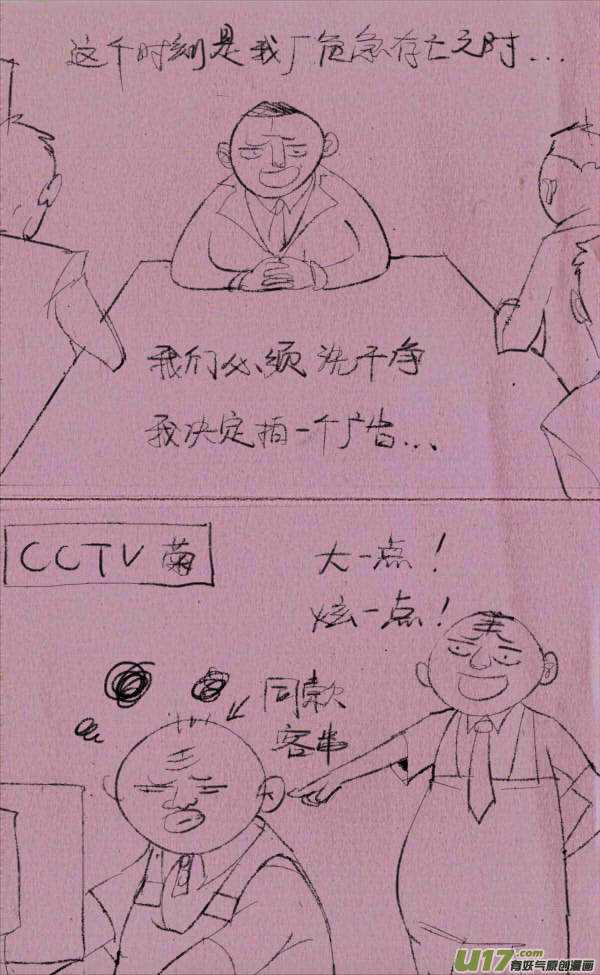 这个时刻是我厂危急存亡之时...
我们必须洗干净
我决定拍一个广告...
CCTV 菊
大一点！
炫一点！
同款
客串
U17.com
有妖气原创漫画